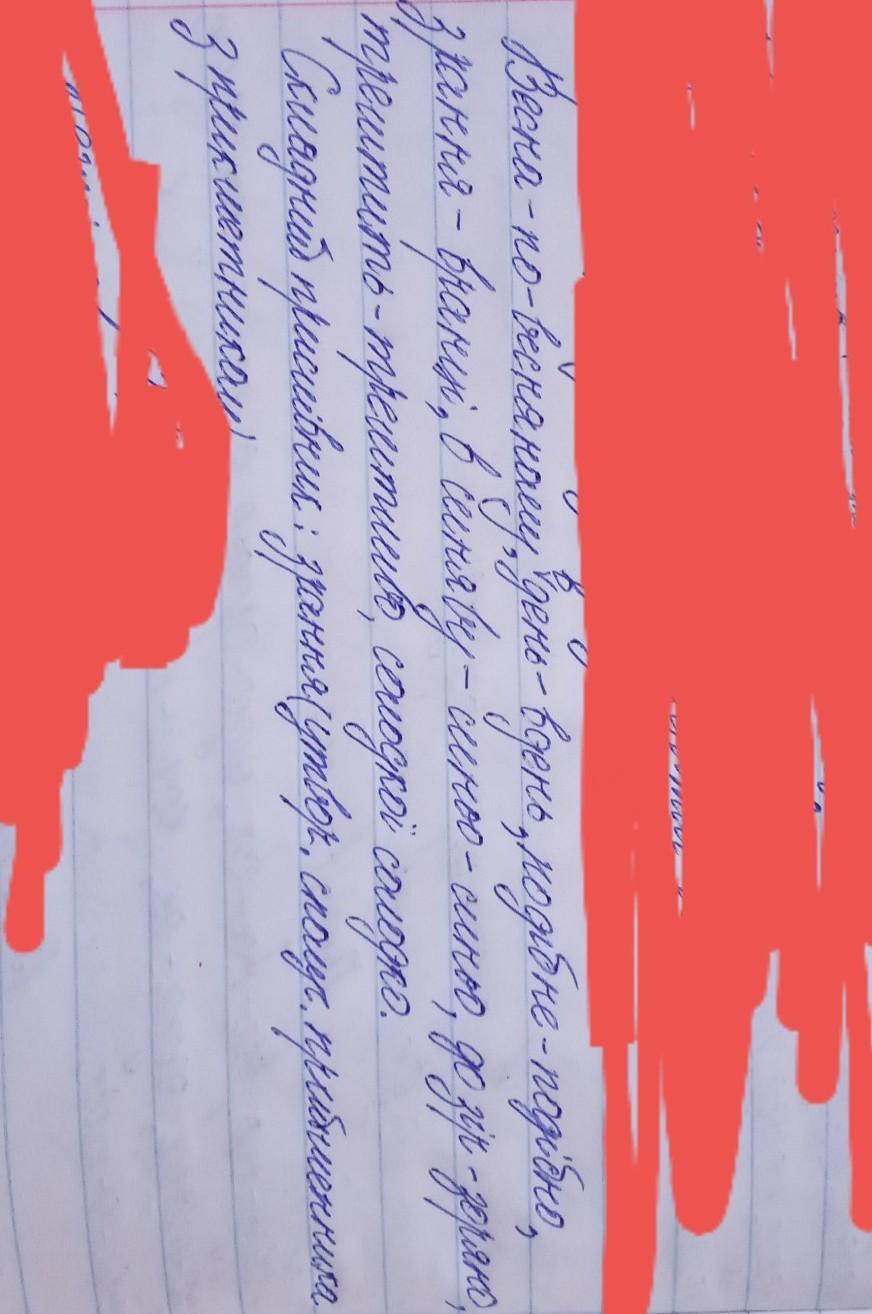 Весна - по-весняному, день - вдень, подібне - подібно,
з рання - вранці, в синяву - синьо-синьо, до зір - зоряно,
тремтить - тремтливо, солодкої солодко.
Складний прислівник: зрання (утвор. сполук. прийменника
з прикметником)